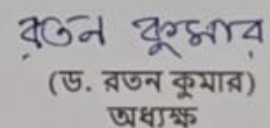 রতন কুমার
(ড. রতন কুমার)
অধ্যক্ষ